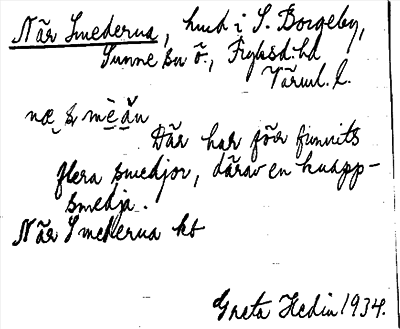 När Smederna, hmd i S. Borgeby,
Sunne sn ö., Fryksd. hd
Värml. l.
Där har förr funnits
flera smedjor, därav en knapp-
smedja.
När Smederna kb
Greta Hedin 1934.